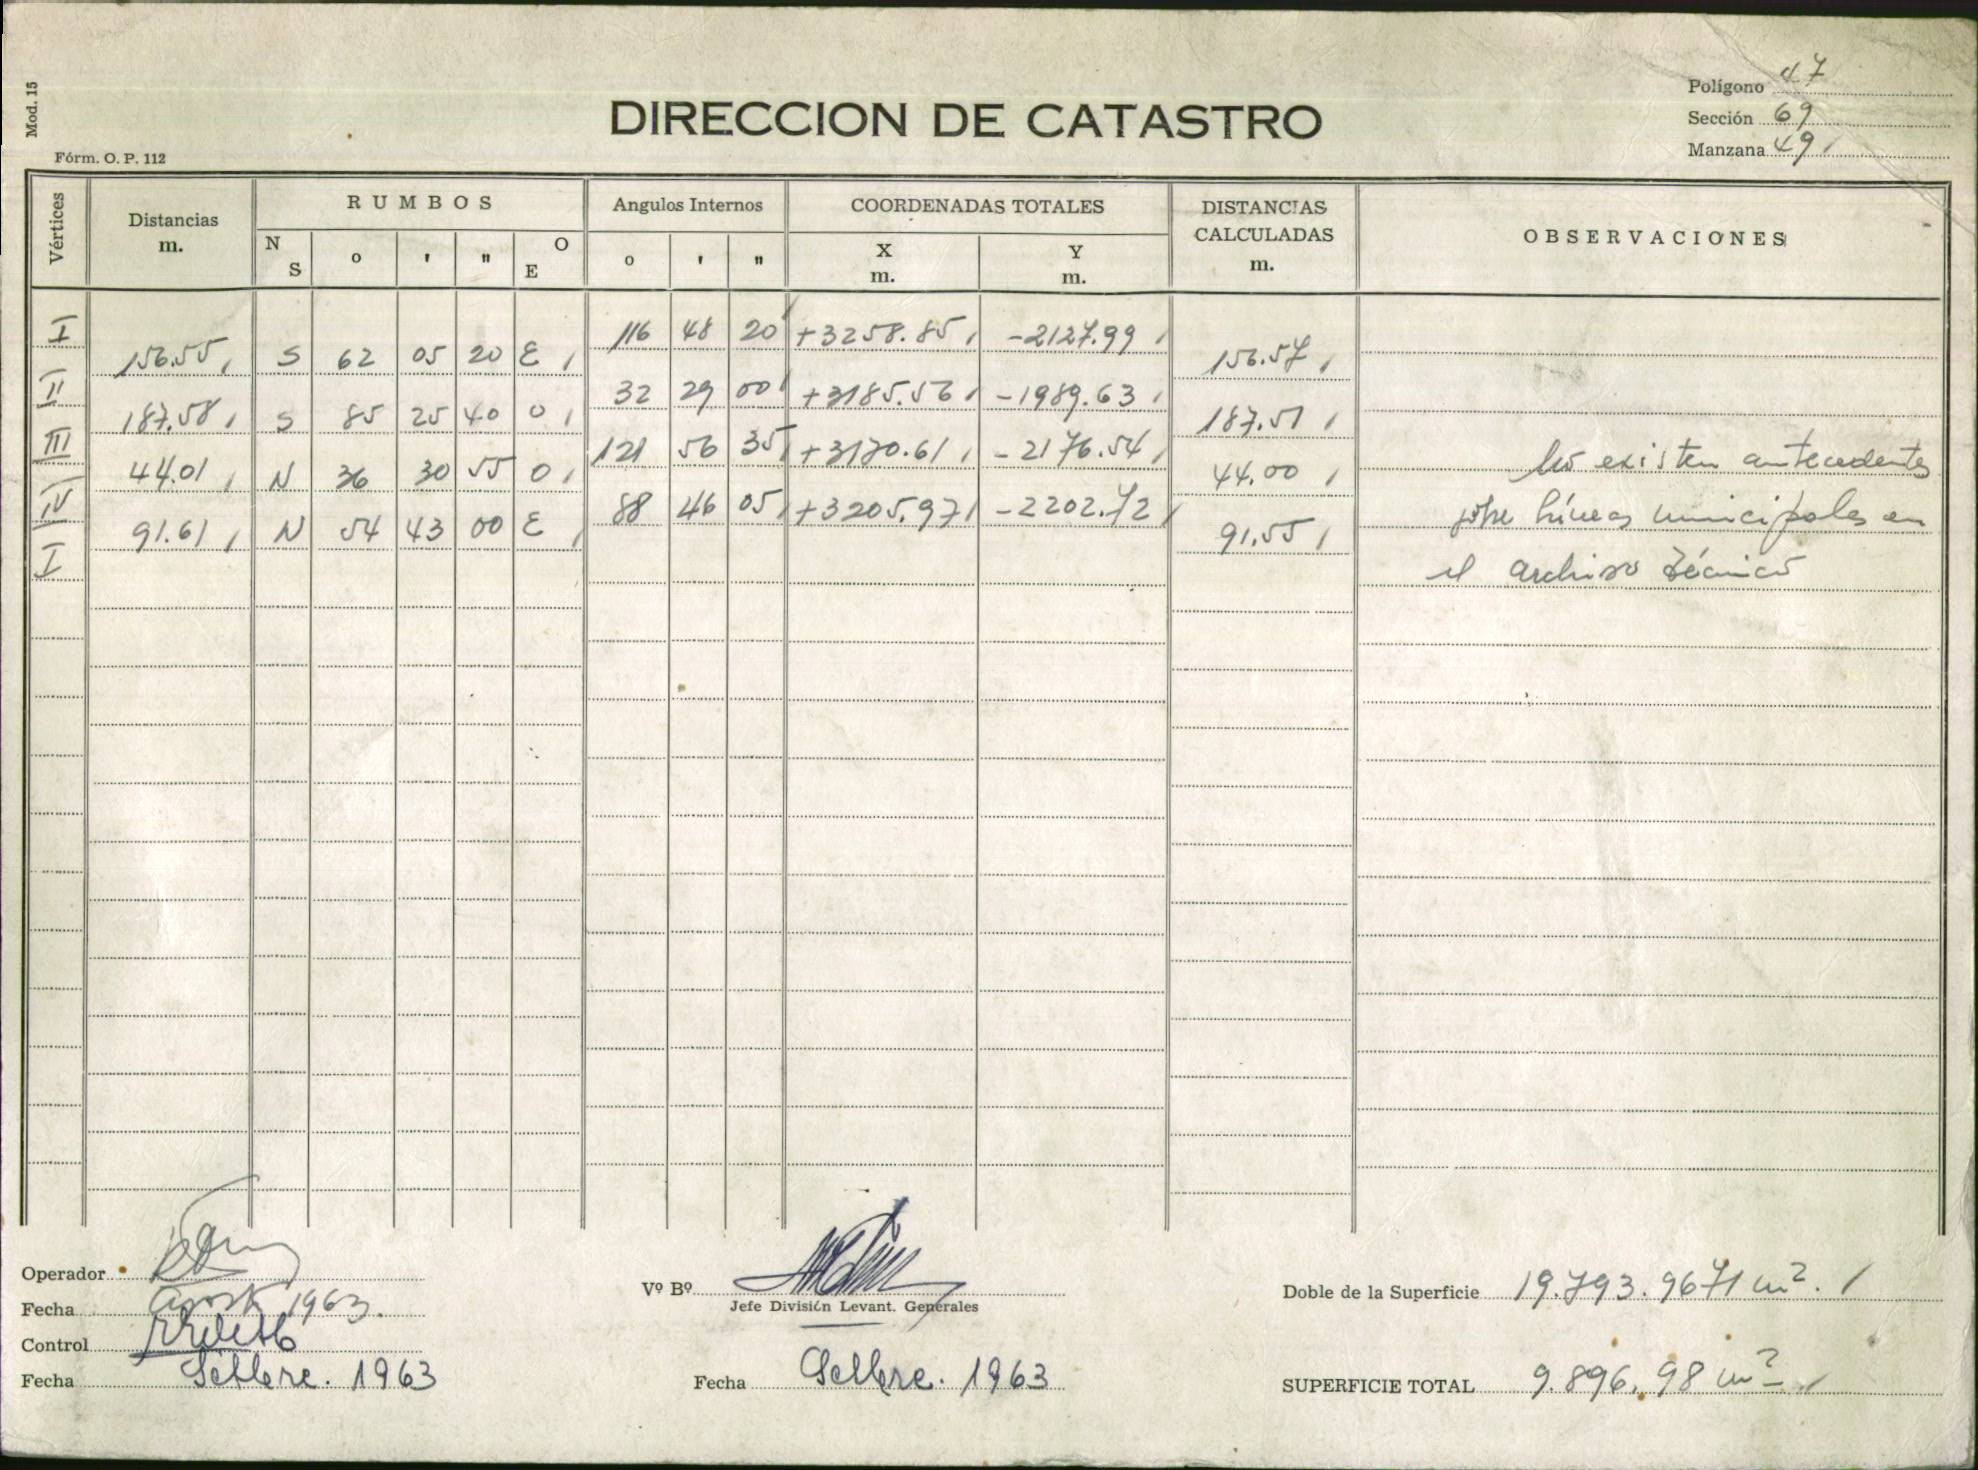 Mod. 15
Fórm. O. P. 112
DIRECCION DE CATASTRO
Polígono 47
Sección 69
Manzana 49
Vértices Distancias m. RUMBOS N S o ' " O E Angulos Internos o ' " COORDENADAS TOTALES X m. Y m. DISTANCIAS CALCULADAS m. OBSERVACIONES
I 116 48 20 +3258.85 -2127.99
156.55 S 62 05 20 E 156.57
II 32 29 00 +3185.56 -1989.63
187.58 S 85 25 40 O 187.51
III 121 56 35 +3170.61 -2176.54
44.01 N 36 30 55 O 44.00 No existen antecedentes
IV 88 46 05 +3205.97 -2202.72 sobre líneas municipales en
91.61 N 54 43 00 E 91.55
I el archivo técnico
Operador
Fecha Agosto 1963.
Control
Fecha Setbre. 1963
Vº Bº
Jefe División Levant. Generales
Fecha Setbre. 1963
Doble de la Superficie 19.793.9671 m².
SUPERFICIE TOTAL 9.896.98 m²